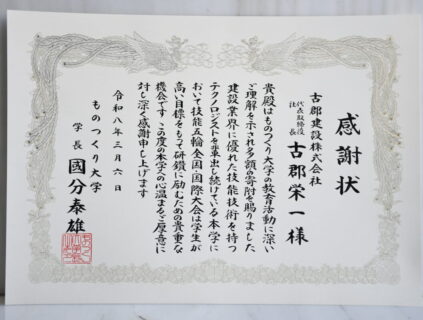 感謝状
古郡建設株式会社
代表取締役
社長
古郡栄一様
貴殿はものつくり大学の教育活動に深い
ご理解を示され多額の寄附を賜りました
建設業界に優れた技能技術を持つ
テクノロジストを輩出し続けている本学に
おいて技能五輪全国・国際大会は学生が
高い目標をもって研鑽に励むための貴重な
機会です この度の本学への心温まるご厚意に
対し深く感謝申し上げます
令和八年三月六日
ものつくり大学
学長 國分泰雄